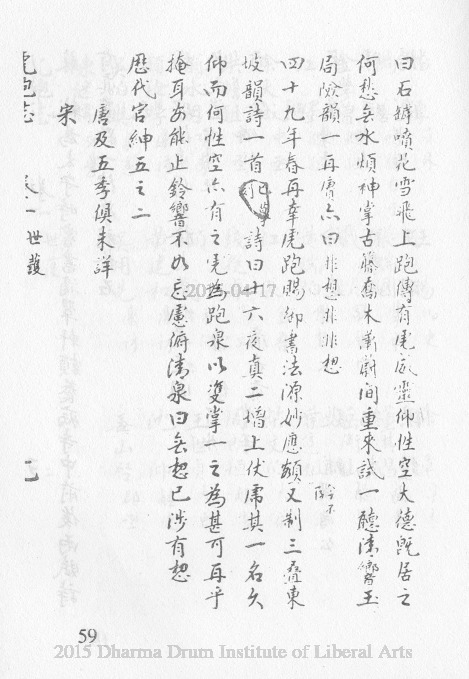 曰石罅噴花雪飛上跑傳有虎威靈仰性空大德既居之
何愁無水煩神掌古藤喬木蕭蔚間重來試一聽清響玉
局險韻一再賡亦曰非想非非想
四十九年春再幸虎跑賜御書法源妙應額又制三疊東
坡韻詩一首 詩曰十六夜叉二僧上伏虎其一名久
仰而何性空亦有之虎為跑泉以雙掌一之為甚可再乎
掩耳安能止鈴響不如忘慮俯清泉曰無想已涉有想
歷代宮紳五之二
唐及五季俱未詳
宋
虎跑志 卷一 世護
2015-04-17
59
2015 Dharma Drum Institute of Liberal Arts